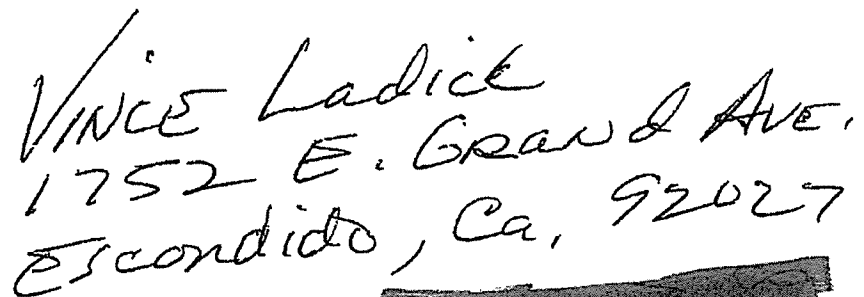 VINCE Ladick
1752 E. GRAND AVE.
Escondido, Ca. 92027